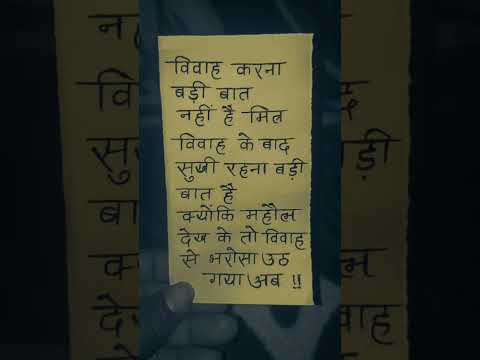 विवाह करना
बड़ी बात
नहीं है मित्र
विवाह के बाद
सुखी रहना बड़ी
बात है
क्योंकि महौल
देख के तो विवाह
से भरोसा उठ
गया अब !!